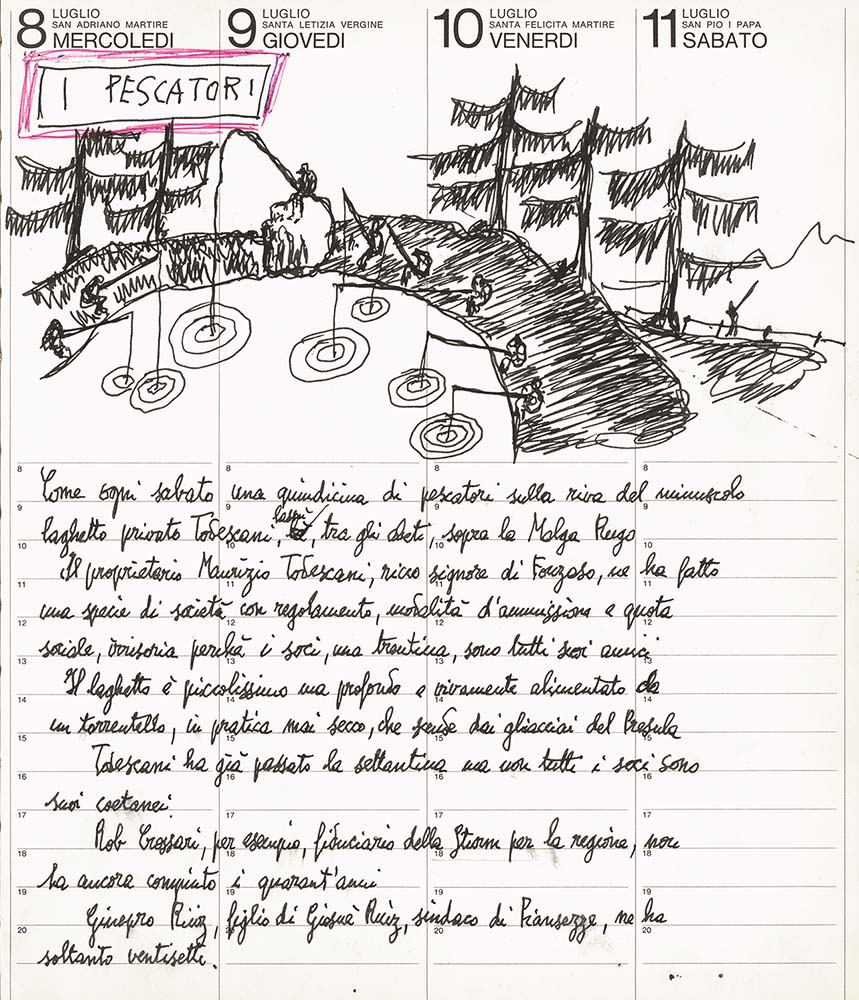 8 LUGLIO SAN ADRIANO MARTIRE MERCOLEDI
9 LUGLIO SANTA LETIZIA VERGINE GIOVEDI
10 LUGLIO SANTA FELICITA MARTIRE VENERDI
11 LUGLIO SAN PIO I PAPA SABATO
I PESCATORI
8 8 8 8
Come ogni sabato una quindicina di pescatori sulla riva del minuscolo
9 9 9 9
laghetto privato Todescani, lassù, tra gli abeti, sopra la Malga Rugo
10 10 10 10
Il proprietario Maurizio Todescani, ricco signore di Fonzaso, ne ha fatto
11 11 11 11
una specie di società con regolamento, modalità d'ammissione e quota
12 12 12 12
sociale, irrisoria perché i soci, una trentina, sono tutti suoi amici
13 13 13 13
Il laghetto è piccolissimo ma profondo e vivamente alimentato da
14 14 14 14
un torrentello, in pratica mai secco, che scende dai ghiacciai del
15 15 15 15
Todescani ha già passato la settantina ma non tutti i soci sono
16 16 16 16
suoi coetanei.
17 17 17 17
Rob Crossari, per esempio, fiduciario della Sturm per la regione, non
18 18 18 18
ha ancora compiuto i quarant'anni
19 19 19 19
Ginepro Rüiz, figlio di Giosuè Rüiz, sindaco di Piansezze, ne ha
20 20 20 20
soltanto ventisette.